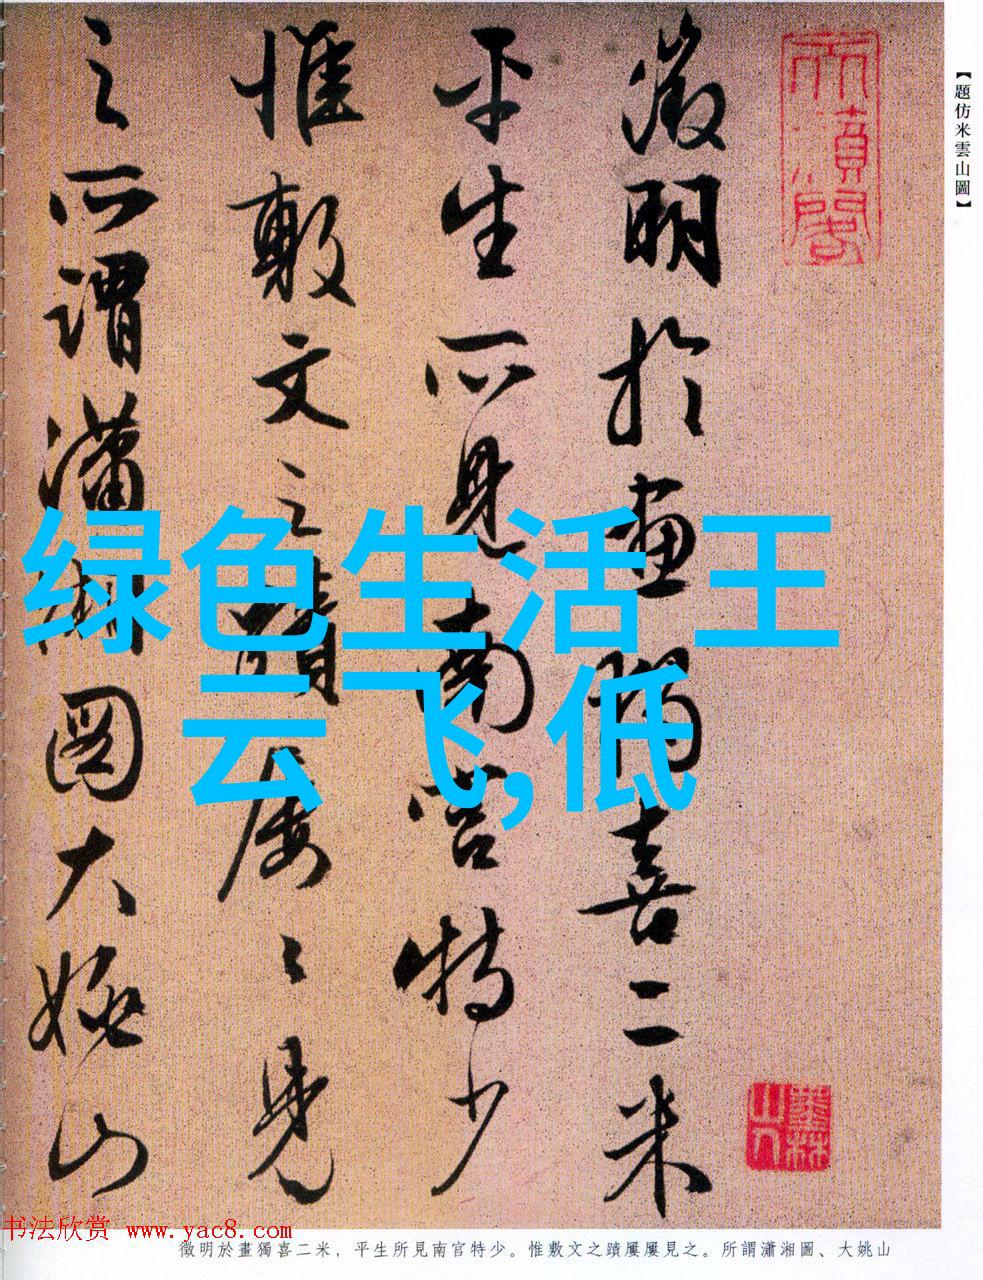 【題仿米雲山圖】
徵明於畫獨喜二米
平生所見南宫特少
惟敷文之蹟屢〻見
之所謂瀟湘圖大姚山
绿色生活王
云飞,低
墨林
山人
书法欣赏 www.yac8.com
徵明於畫獨喜二米，平生所見南官特少。惟敷文之蹟屢屢見之。所謂瀟湘圖、大姚山